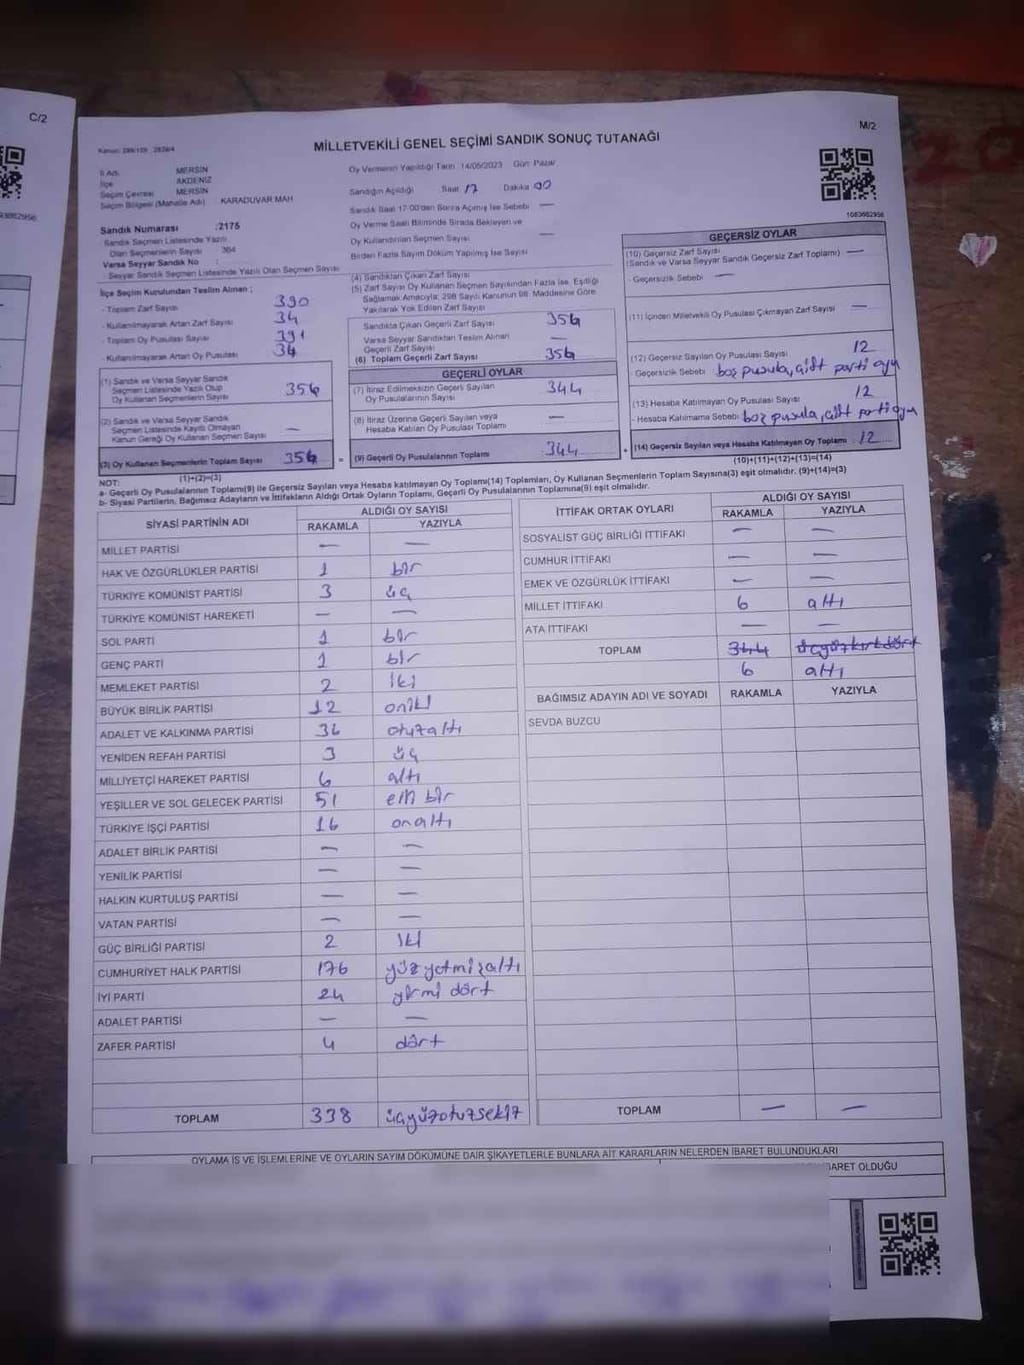 C/2
M/2
MİLLETVEKİLİ GENEL SEÇİMİ SANDIK SONUÇ TUTANAĞI
İl Adı: MERSİN
İlçe AKDENİZ
Seçim Çevresi MERSİN
Seçim Bölgesi (Mahalle Adı) KARADUVAR MAH
Sandık Numarası :2175
Sandık Seçmen Listesinde Yazılı
Olan Seçmenlerin Sayısı 364
Varsa Seyyar Sandık No :
Seyyar Sandık Seçmen Listesinde Yazılı Olan Seçmen Sayısı
İlçe Seçim Kurulundan Teslim Alınan ;
- Toplam Zarf Sayısı 390
- Kullanılmayarak Artan Zarf Sayısı 34
- Toplam Oy Pusulası Sayısı 391
- Kullanılmayarak Artan Oy Pusulası 34
(1) Sandık ve Varsa Seyyar Sandık
Seçmen Listesinde Yazılı Olup
Oy Kullanan Seçmenlerin Sayısı 356
(2) Sandık ve Varsa Seyyar Sandık
Seçmen Listesinde Kayıtlı Olmayan
Kanun Gereği Oy Kullanan Seçmen Sayısı —
(3) Oy Kullanan Seçmenlerin Toplam Sayısı 356
(1)+(2)=(3)
Oy Vermenin Yapıldığı Tarih 14/05/2023 Gün: Pazar
Sandığın Açıldığı Saat 17 Dakika 00
Sandık Saat 17:00'den Sonra Açılmış İse Sebebi —
Oy Verme Saati Bitiminde Sırada Bekleyen ve
Oy Kullandırılan Seçmen Sayısı —
Birden Fazla Sayım Döküm Yapılmış İse Sayısı
(4) Sandıktan Çıkan Zarf Sayısı
(5) Zarf Sayısı Oy Kullanan Seçmen Sayısından Fazla İse, Eşitliği
Sağlamak Amacıyla; 298 Sayılı Kanunun 98. Maddesine Göre
Yakılarak Yok Edilen Zarf Sayısı
Sandıkta Çıkan Geçerli Zarf Sayısı 356
Varsa Seyyar Sandıktan Teslim Alınan
Geçerli Zarf Sayısı —
(6) Toplam Geçerli Zarf Sayısı 356
GEÇERLİ OYLAR
(7) İtiraz Edilmeksizin Geçerli Sayılan
Oy Pusulasının Sayısı 344
(8) İtiraz Üzerine Geçerli Sayılan veya
Hesaba Katılan Oy Pusulası Toplamı —
(9) Geçerli Oy Pusulalarının Toplamı 344
1083682956
GEÇERSİZ OYLAR
(10) Geçersiz Zarf Sayısı
(Sandık ve Varsa Seyyar Sandık Geçersiz Zarf Toplamı) —
- Geçersizlik Sebebi —
(11) İçinden Milletvekili Oy Pusulası Çıkmayan Zarf Sayısı —
(12) Geçersiz Sayılan Oy Pusulası Sayısı 12
- Geçersizlik Sebebi boş pusula, çift parti oyu
(13) Hesaba Katılmayan Oy Pusulası Sayısı 12
- Hesaba Katılmama Sebebi boş pusula, çift parti oyu
(14) Geçersiz Sayılan veya Hesaba Katılmayan Oy Toplamı 12
(10)+(11)+(12)+(13)=(14)
NOT:
a- Geçerli Oy Pusulalarının Toplamı(9) ile Geçersiz Sayılan veya Hesaba katılmayan Oy Toplamı(14) Toplamları, Oy Kullanan Seçmenlerin Toplam Sayısına(3) eşit olmalıdır. (9)+(14)=(3)
b- Siyasi Partilerin, Bağımsız Adayların ve İttifakların Aldığı Ortak Oyların Toplamı, Geçerli Oy Pusulalarının Toplamına(9) eşit olmalıdır.
SİYASİ PARTİNİN ADI ALDIĞI OY SAYISI
RAKAMLA YAZIYLA
MİLLET PARTİSİ — —
HAK VE ÖZGÜRLÜKLER PARTİSİ 1 bir
TÜRKİYE KOMÜNİST PARTİSİ 3 üç
TÜRKİYE KOMÜNİST HAREKETİ — —
SOL PARTİ 1 bir
GENÇ PARTİ 1 bir
MEMLEKET PARTİSİ 2 iki
BÜYÜK BİRLİK PARTİSİ 12 oniki
ADALET VE KALKINMA PARTİSİ 36 otuzaltı
YENİDEN REFAH PARTİSİ 3 üç
MİLLİYETÇİ HAREKET PARTİSİ 6 altı
YEŞİLLER VE SOL GELECEK PARTİSİ 51 elli bir
TÜRKİYE İŞÇİ PARTİSİ 16 onaltı
ADALET BİRLİK PARTİSİ — —
YENİLİK PARTİSİ — —
HALKIN KURTULUŞ PARTİSİ — —
VATAN PARTİSİ — —
GÜÇ BİRLİĞİ PARTİSİ 2 iki
CUMHURİYET HALK PARTİSİ 176 yüz yetmişaltı
İYİ PARTİ 24 yirmi dört
ADALET PARTİSİ — —
ZAFER PARTİSİ 4 dört
TOPLAM 338 üçyüzotuzsekiz
İTTİFAK ORTAK OYLARI ALDIĞI OY SAYISI
RAKAMLA YAZIYLA
SOSYALİST GÜÇ BİRLİĞİ İTTİFAKI — —
CUMHUR İTTİFAKI — —
EMEK VE ÖZGÜRLÜK İTTİFAKI — —
MİLLET İTTİFAKI 6 altı
ATA İTTİFAKI — —
TOPLAM 344 üçyüzkırkdört
6 altı
BAĞIMSIZ ADAYIN ADI VE SOYADI RAKAMLA YAZIYLA
SEVDA BUZCU
TOPLAM — —
OYLAMA İŞ VE İŞLEMLERİNE VE OYLARIN SAYIM DÖKÜMÜNE DAİR ŞİKAYETLERLE BUNLARA AİT KARARLARIN NELERDEN İBARET BULUNDUKLARI
İBARET OLDUĞU